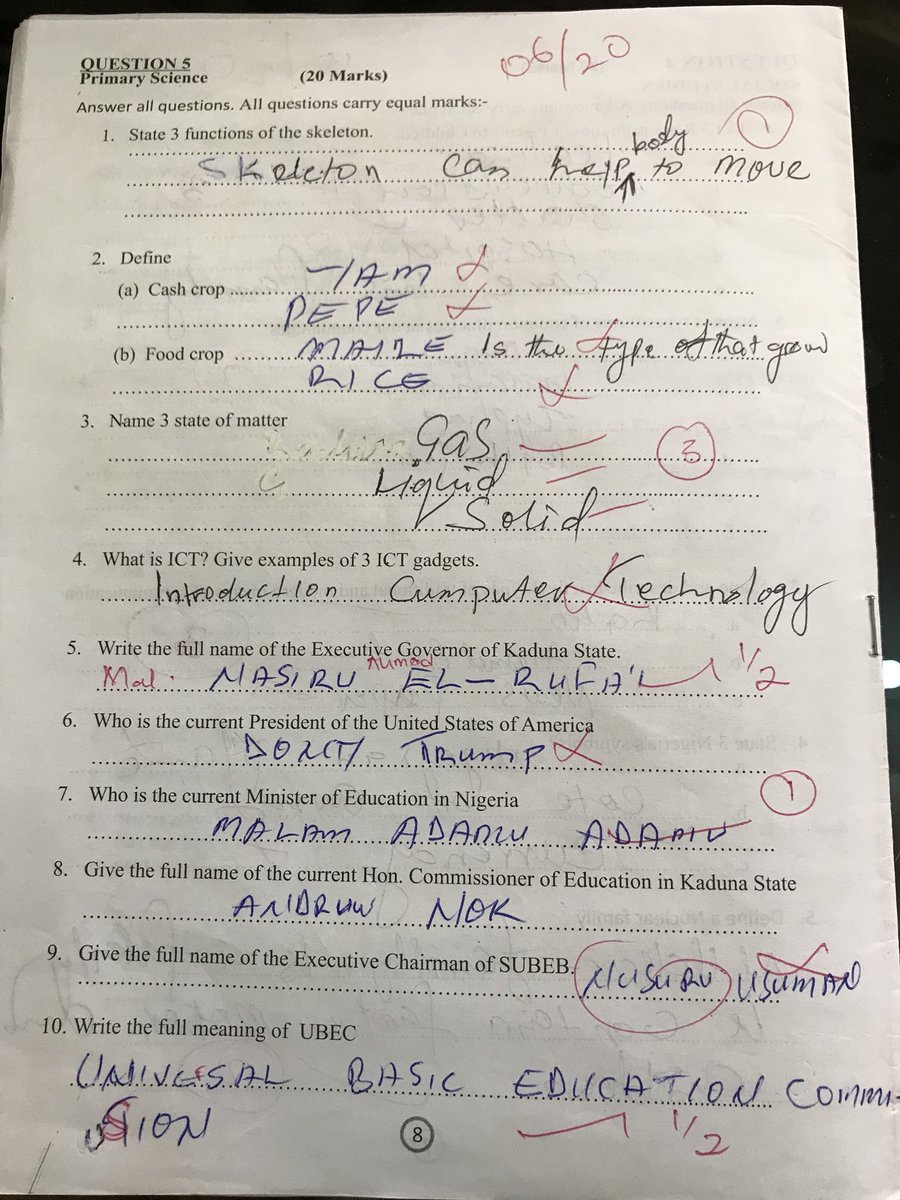 QUESTION 5
06/20
Primary Science (20 Marks)
Answer all questions. All questions carry equal marks:-
1. State 3 functions of the skeleton. 1
Skeleton can help body to move
2. Define
(a) Cash crop YAM
PEPE
(b) Food crop MAIZE Is the type of that grow
RICE
3. Name 3 state of matter
Gas 3
Liquid
Solid
4. What is ICT? Give examples of 3 ICT gadgets.
Introduction Cumputer Technology
5. Write the full name of the Executive Governor of Kaduna State.
Mal. NASIRU Ahmed EL-RUFA'I 1/2
6. Who is the current President of the United States of America
TRUMP
7. Who is the current Minister of Education in Nigeria 1
MALAM ADAMU ADAMU
8. Give the full name of the current Hon. Commissioner of Education in Kaduna State
ANDRUW NOK
9. Give the full name of the Executive Chairman of SUBEB. NUSURU USUMAN
10. Write the full meaning of UBEC
UNIVESAL BASIC EDUCATION COMMI-
SSION 1/2
8